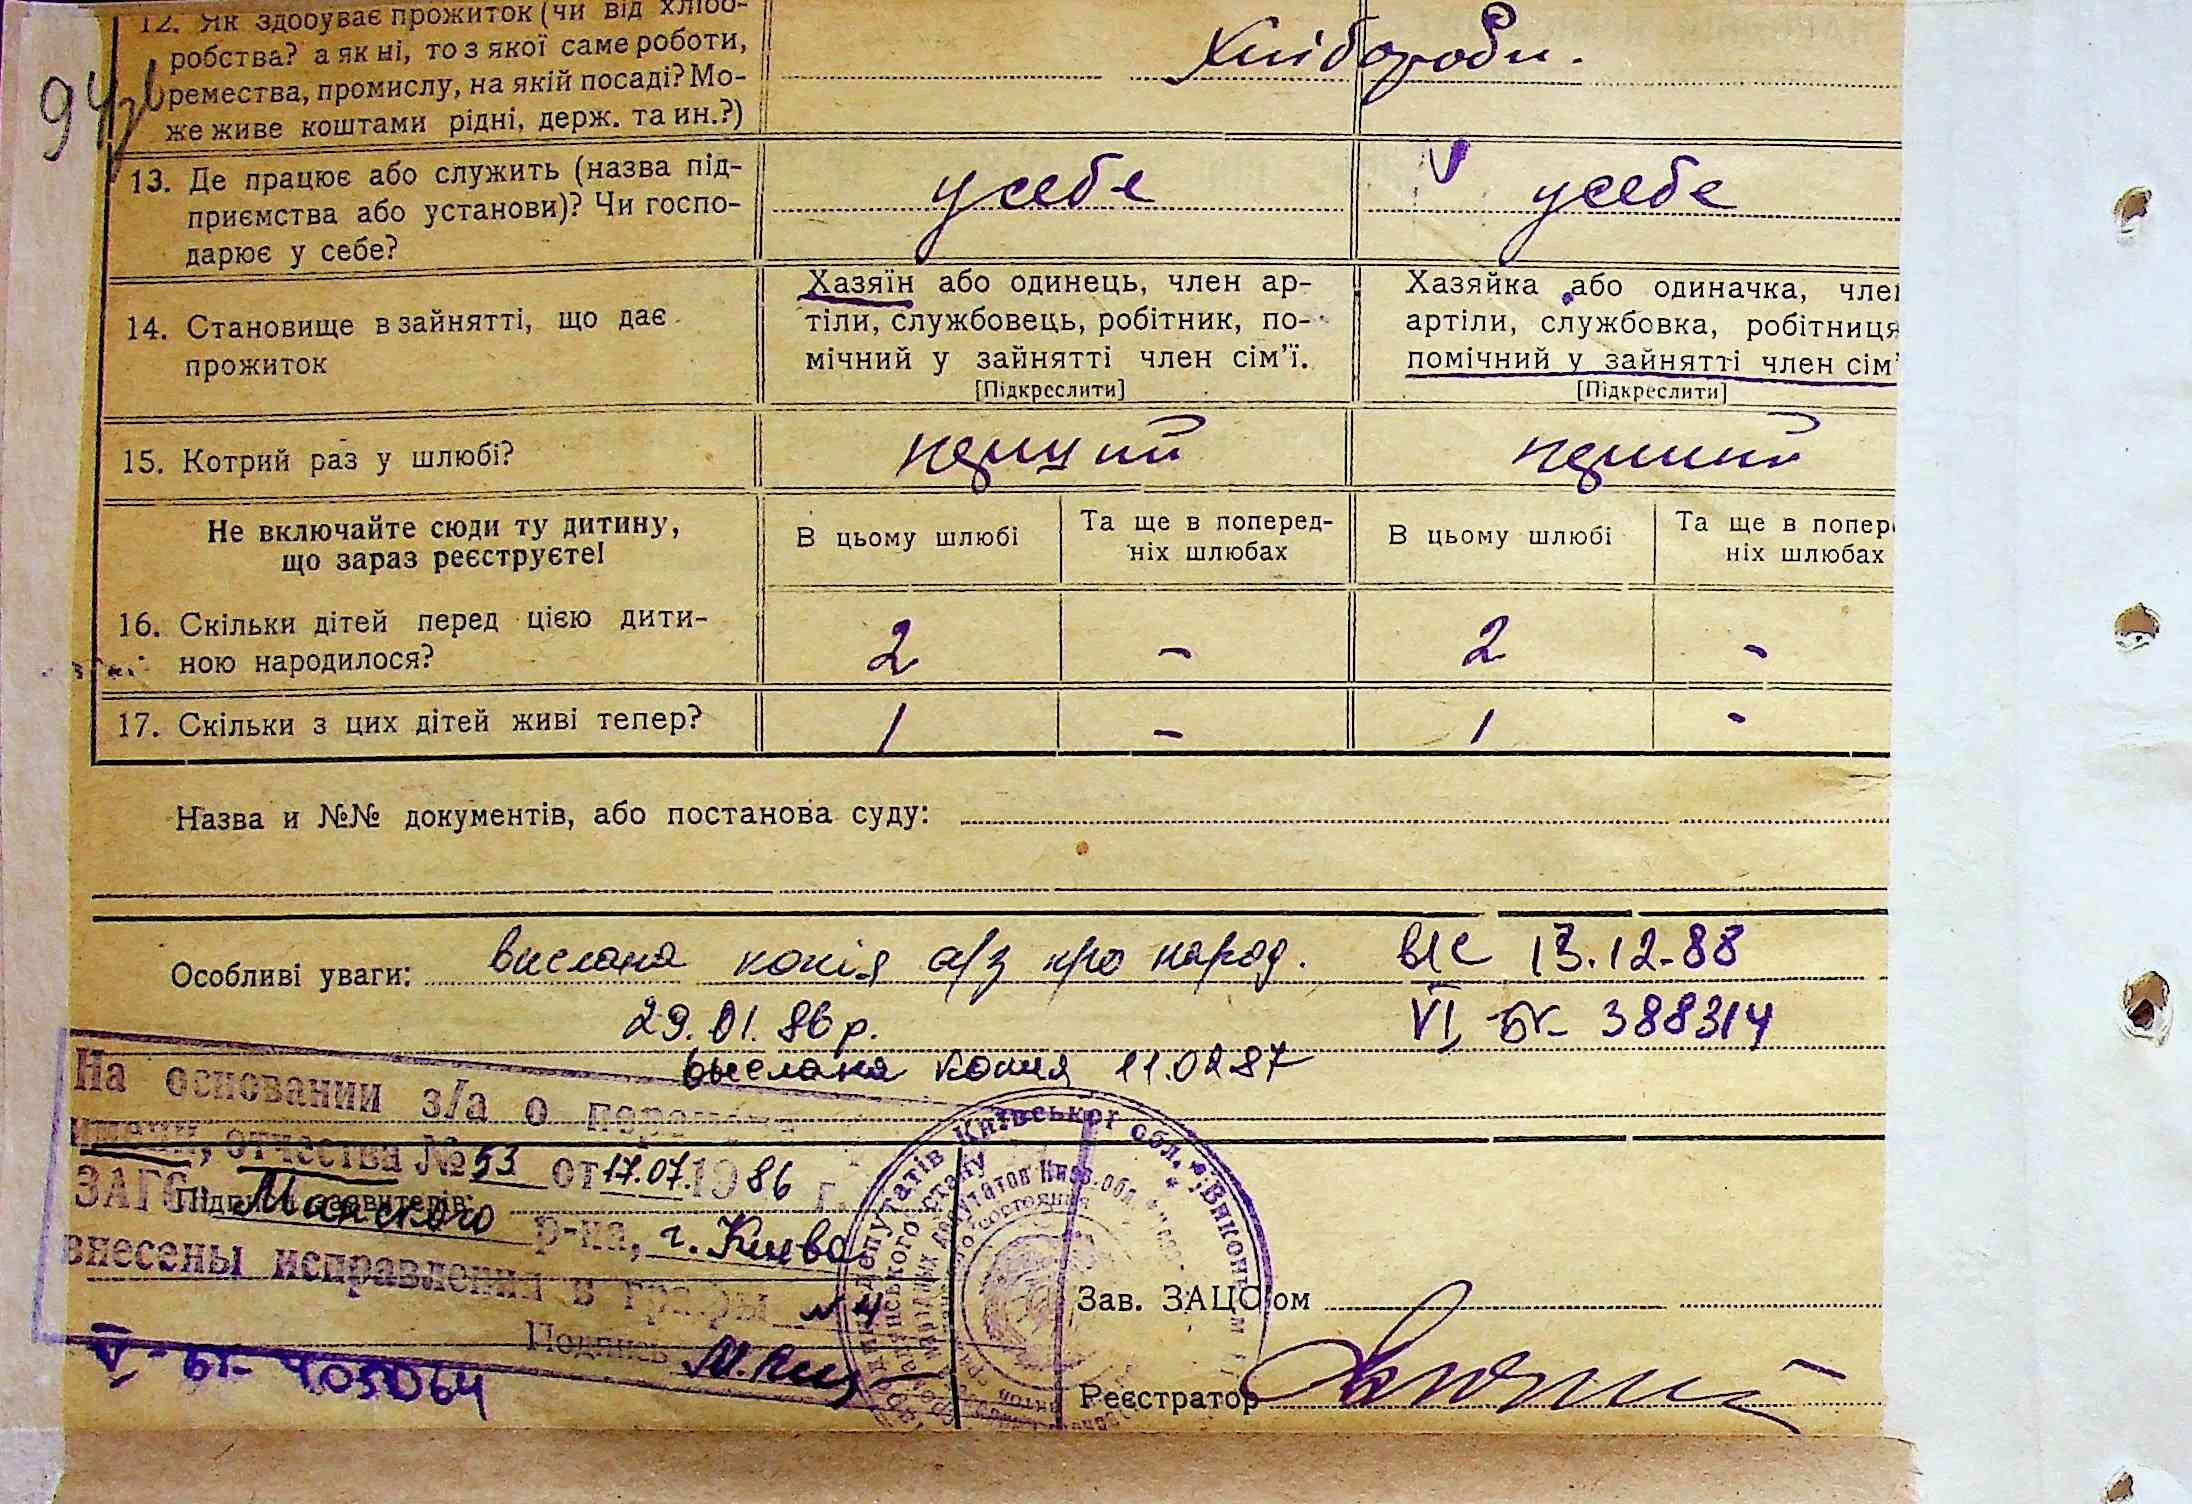 12. Як здобуває прожиток (чи від хлібо-
робства? а як ні, то з якої саме роботи,
ремества, промислу, на якій посаді? Мо-
же живе коштами рідні, держ. та ин.?)
Хлібороби.
94зв
13. Де працює або служить (назва під-
приємства або установи)? Чи госпо-
дарює у себе?
у себе
у себе
14. Становище в зайнятті, що дає
прожиток
Хазяїн або одинець, член ар-
тіли, службовець, робітник, по-
мічний у зайнятті член сім'ї.
[Підкреслити]
Хазяйка або одиначка, член
артіли, службовка, робітниця
помічний у зайнятті член сім'
[Підкреслити]
15. Котрий раз у шлюбі?
перший
перший
Не включайте сюди ту дитину,
що зараз реєструєте!
В цьому шлюбі
Та ще в поперед-
ніх шлюбах
В цьому шлюбі
Та ще в попер
ніх шлюбах
16. Скільки дітей перед цією дити-
ною народилося?
2 - 2 -
17. Скільки з цих дітей живі тепер?
1 - 1 -
Назва и №№ документів, або постанова суду:
Особливі уваги: выслана копія а/з про народ. в/с 13.12-88
29.01.86 р. VI БК- 388314
выслана копия 11.02 87
На основании з/а о перемене
имени, отчества № 53 от 17.07.1986 г.
ЗАГС Минского р-на, г. Киева
Підписи заявителів:
внесены исправления в графы №4
Подпись
V - БК- 403064
Зав. ЗАЦС'ом
Реєстратор